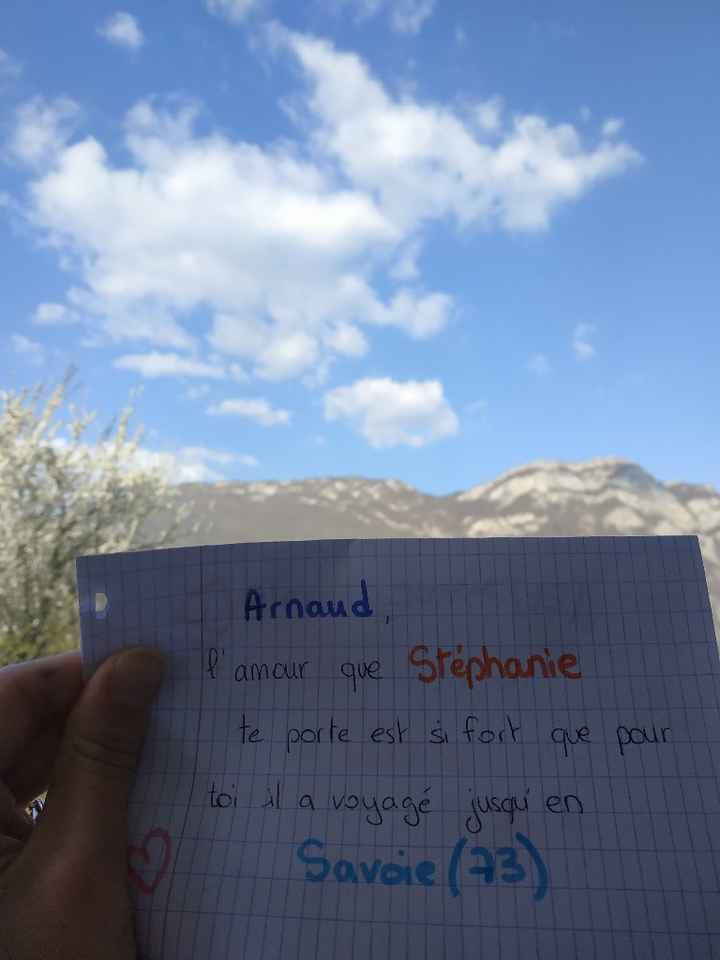 Arnaud,
l'amour que Stéphanie
te porte est si fort que pour
toi il a voyagé jusqu'en
Savoie (73)